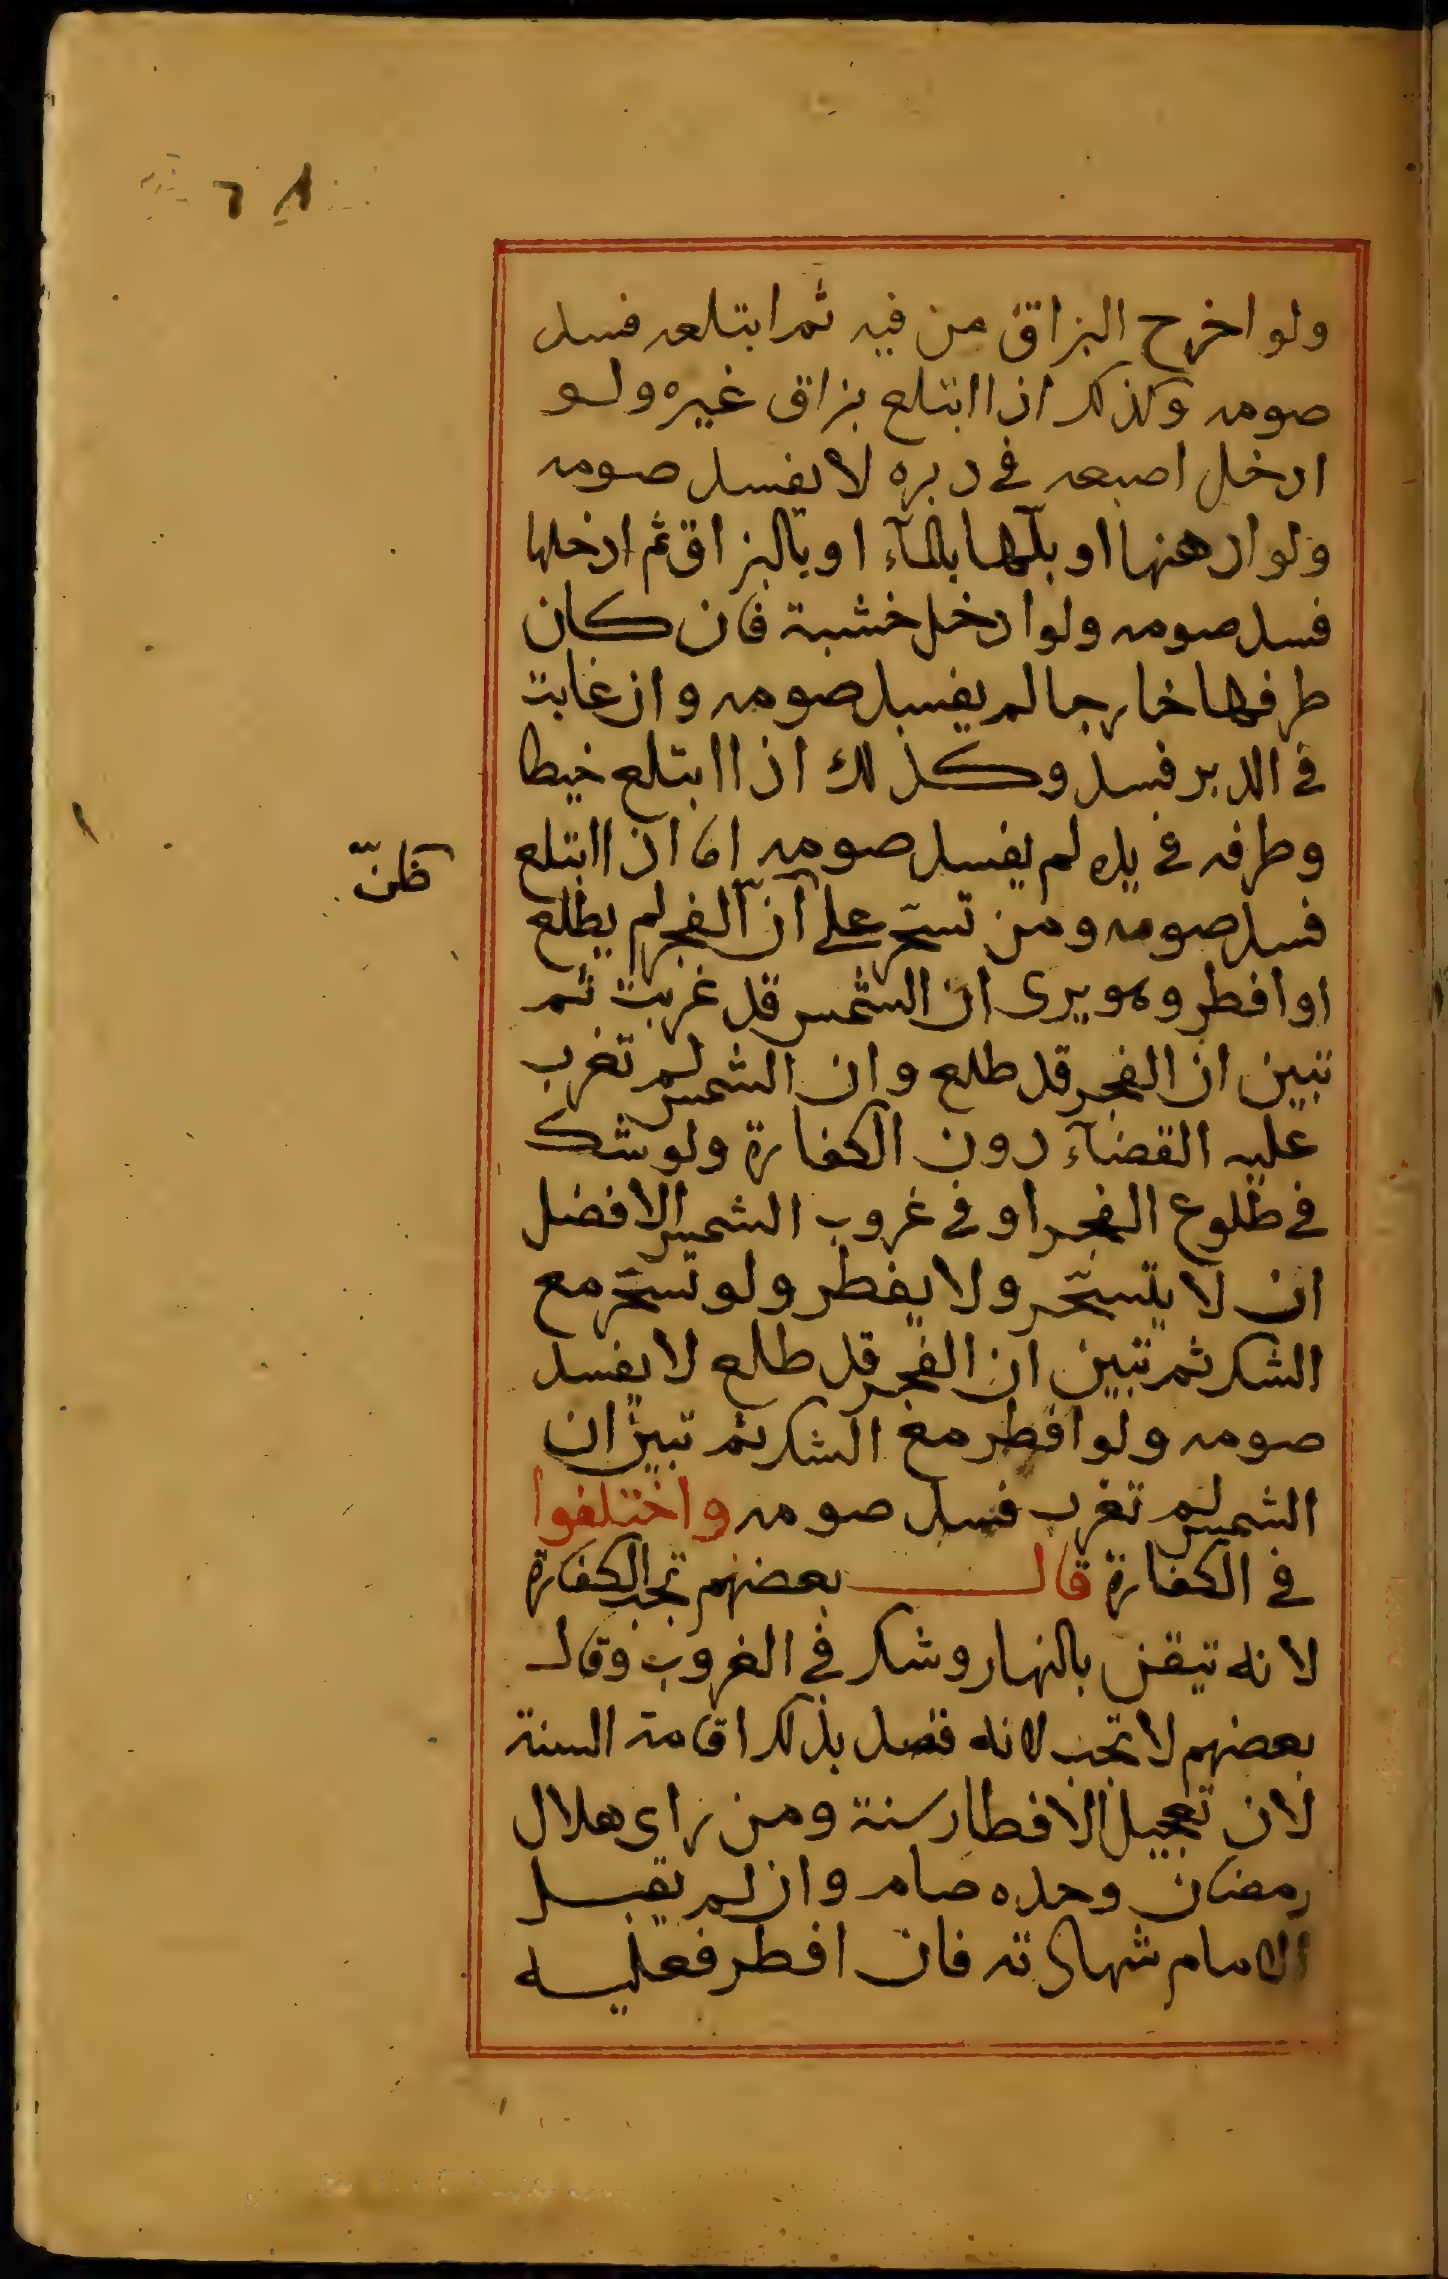 ولو اخرج البزاق من فيه ثم ابتلعه فسد
صومه وكذلك اذا ابتلع بزاق غيره ولو
ادخل اصبعه في دبره لا يفسد صومه
ولو ادهنها او بلّها بالمآء او بالبزاق ثم ادخلها
فسد صومه ولو ادخل خشبة فان كان
طرفها خارجا لم يفسد صومه وان غابت
في الدبر فسد وكذلك اذا ابتلع خيطا
وطرفه في يده لم يفسد صومه اما اذا ابتلع
فسد صومه ومن تسحّر على انّ الفجر لم يطلع
او افطر وهو يرى ان الشمس قد غربت ثم
تبين ان الفجر قد طلع وان الشمس لم تغرب
عليه القضآء دون الكفارة ولو شك
في طلوع الفجر او في غروب الشمس الافضل
ان لا يتسحّر ولا يفطر ولو تسحّر مع
الشك ثم تبين ان الفجر قد طلع لا يفسد
صومه ولو افطر مع الشك ثم تبين ان
الشمس لم تغرب فسد صومه واختلفوا
في الكفارة قال بعضهم تجب الكفارة
لانه تيقن بالنهار وشك في الغروب وقال
بعضهم لا تجب لانه قصد بذلك اقامة السنة
لان تعجيل الافطار سنة ومن راى هلال
رمضان وحده صام وان لم يقبل
الامام شهادته فان افطر فعليه